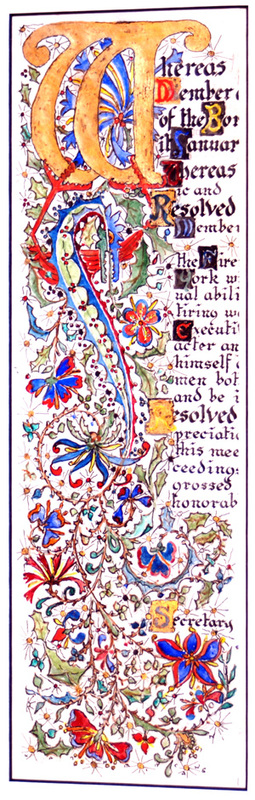 Whereas
Member
of the Bor
Januar
Whereas
ic and
Resolved
Member
the Fire
York w
ual abili
tiring w
Executi
acter an
himself
men bot
and be i
Resolved
preciatio
this mee
ceeding
grossed
honorab
Secretary